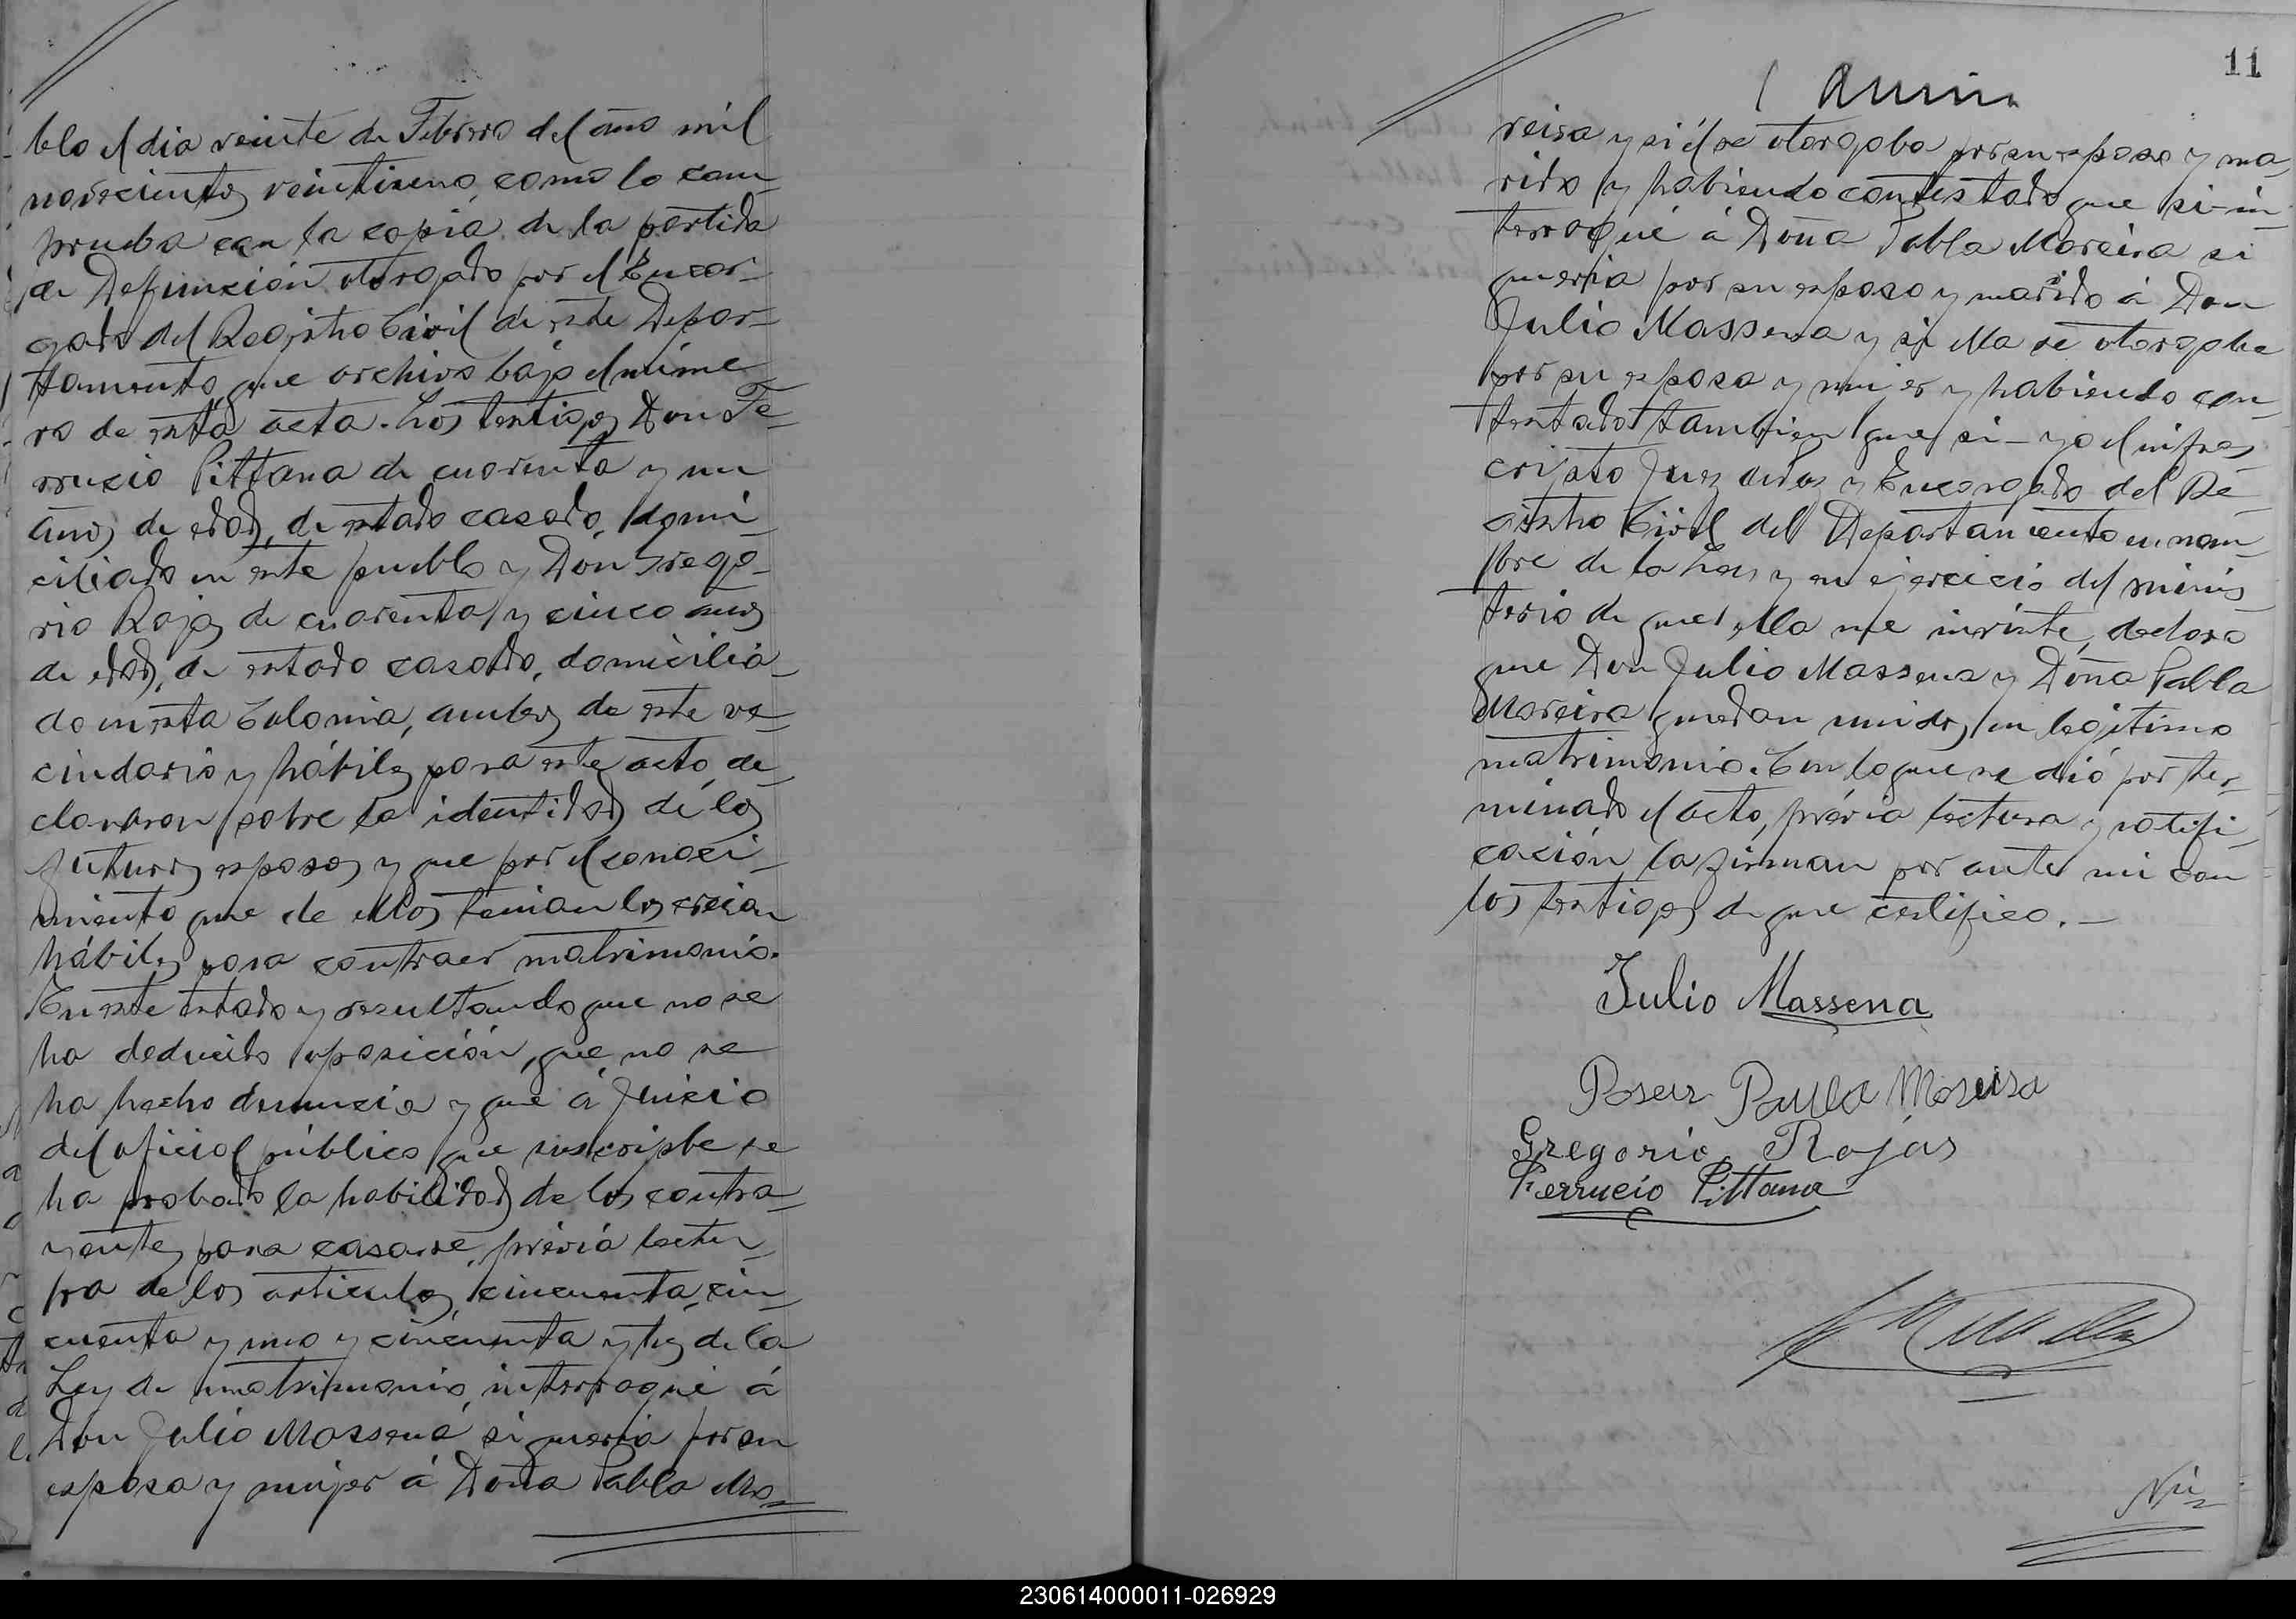 blo el dia veinte de Febrero del año mil
novecientos veintiseno, como lo com-
prueba con la copia de la partida
de Defunción otorgado por el Encar-
gado del Registro Civil de este Depar-
tamento, que archivo bajo el núme-
ro de esta acta. Los testigos Don Fe-
rrucio Pittana de cuarenta y un
años de edad, de estado casado, domi-
ciliado en este pueblo y Don Grego-
rio Rojas de cuarenta y cinco años
de edad, de estado casado, domicilia-
do en esta Colonia, ambos de este ve-
cindario y hábiles para este acto, de-
clararon sobre la identidad de los
futuros esposos y que por el conoci-
miento que de ellos tenian los creian
hábiles para contraer matrimonio.
En este estado y resultando que no se
ha deducido oposición, que no se
ha hecho denuncia y que á Juicio
del oficial público que suscripbe se
ha probado la habilidad de los contra-
yentes para casarse, prévia lectu-
ra de los articulos, cincuenta, cin-
cuenta y uno y cincuenta y tres de la
Ley de matrimonio, interrogué á
Don Julio Massena, si queria por su
esposa y mujer á Doña Pabla Mo-
11
reira y si él se otorgaba por su esposo y ma-
rido y habiendo contestado que si - in-
terrogué á Doña Pabla Moreira si
queria por su esposo y marido á Don
Julio Massena y si ella se otorgaba
por su esposa y mujer y habiendo con-
testado tambien que si - yo el infras-
cripto Juez de Paz y Encargado del Re-
gistro Civil del Departamento en nom-
bre de la Ley y en ejercicio del minis-
terio de que ella me inviste, declaro
que Don Julio Massena y Doña Pabla
Moreira quedan unidos en legitimo
matrimonio. Con lo que se dió por ter-
minado el acto, prévia lectura y ratifi-
cación la firman por ante mi con
los testigos de que certifico. -
Julio Massena
Paula Moreira
Gregorio Rojas
Ferrucio Pittana
Nú-
230614000011-026929